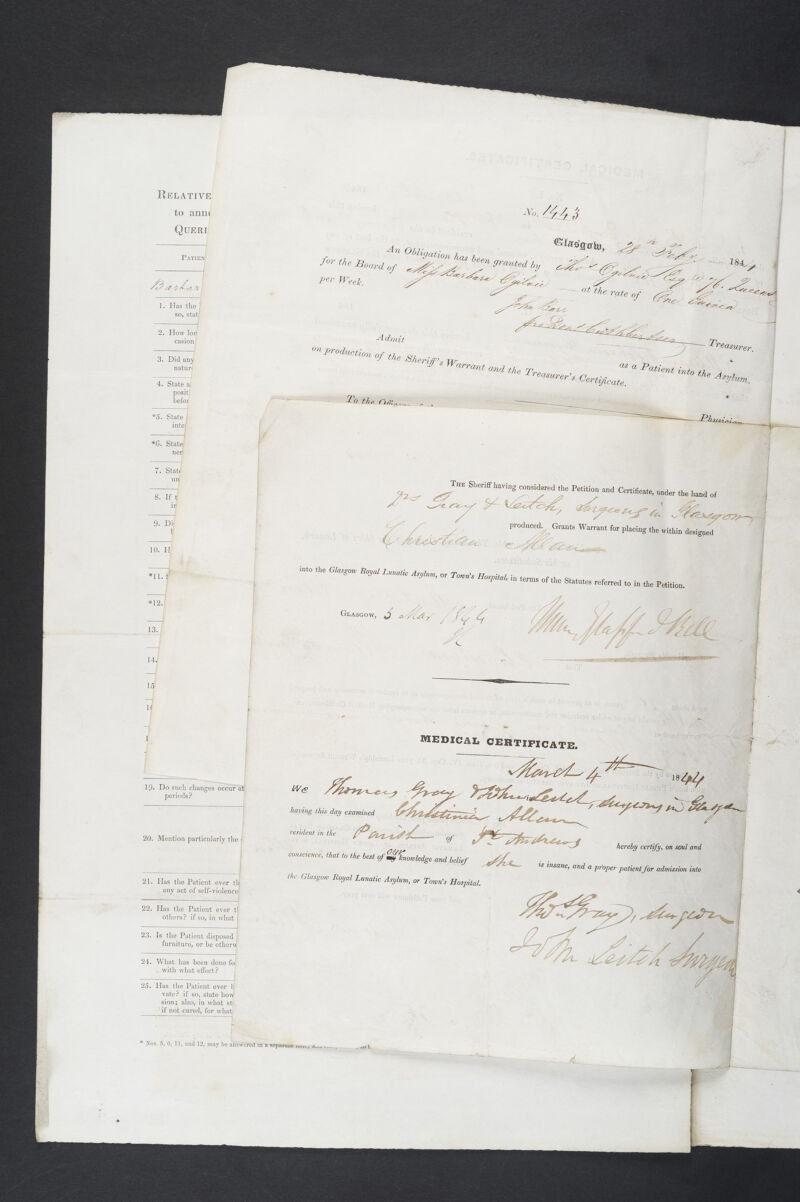 RELATIVE
to ann
QUERI
PATIEN
Barbar
1. Has the
so, stat
2. How lon
casion
3. Did any
natur
4. State a
posit
befor
*5. State
inte
*6. State
ner
7. State
un
8. If t
i
9. Di
10. H
*11.
*12.
13.
14.
15
19. Do such changes occur at
periods?
20. Mention particularly the
21. Has the Patient ever th
any act of self-violence
22. Has the Patient ever t
others? if so, in what
23. Is the Patient disposed
furniture, or be otherw
24. What has been done fo
with what effect?
25. Has the Patient ever b
vate? if so, state how
sion; also, in what st
if not cured, for what
* Nos. 5, 6, 11, and 12, may be answered in a separate
No. 1443
Glasgow, 28th Feby 1844
An Obligation has been granted by Thos Ogilvie Esq of 76. Queen
for the Board of Miss Barbara Ogilvie at the rate of One Guinea
per Week.
John Barr
Treasurer.
Admit as a Patient into the Asylum,
on production of the Sheriff's Warrant and the Treasurer's Certificate.
To the Officers
Physician
THE Sheriff having considered the Petition and Certificate, under the hand of
Drs Gray & Leitch, Surgeons in Glasgow
produced. Grants Warrant for placing the within designed
Christian Allan
into the Glasgow Royal Lunatic Asylum, or Town's Hospital, in terms of the Statutes referred to in the Petition.
GLASGOW, 5 Mar 1844
MEDICAL CERTIFICATE.
March 4th 1844
We Thomas Gray & John Leitch, Surgeons in Glasgow
having this day examined Christinia Allan
resident in the Parish of St. Andrews hereby certify, on soul and
conscience, that to the best of our knowledge and belief She is insane, and a proper patient for admission into
the Glasgow Royal Lunatic Asylum, or Town's Hospital.
Thos Gray, Surgeon
John Leitch Surgeon